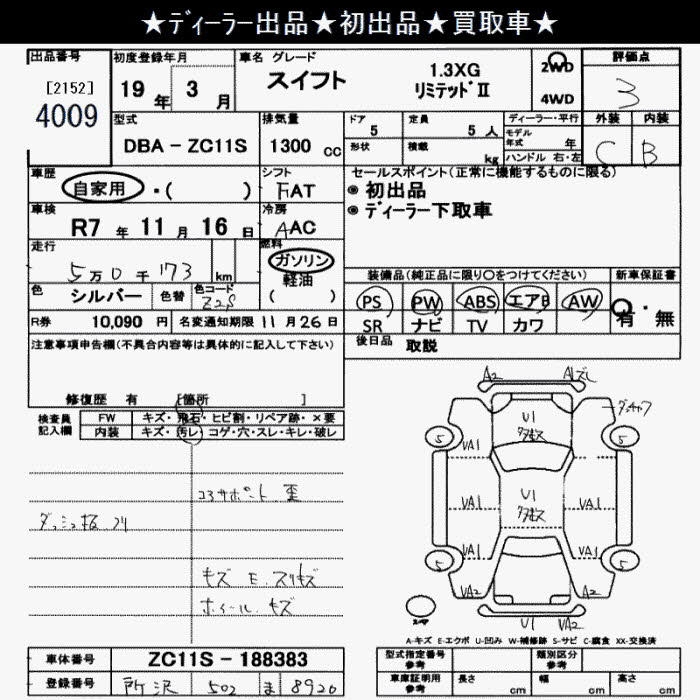 ★ディーラー出品★初出品★買取車★
出品番号 初度登録年月 車名 グレード 評価点
[2152] 19年 3月 スイフト 1.3XG リミテッドⅡ 2WD 4WD 3
4009
型式 排気量 ドア 定員 ディーラー・平行 外装 内装
DBA － ZC11S 1300 cc 5 5 人 モデル年式 年 C B
形状 積載 kg ハンドル 右・左
車歴 シフト セールスポイント(正常に機能するものに限る)
自家用 ・( ) FAT ◉ 初出品
車検 冷房 ◉ ディーラー下取車
R7 年 11 月 16 日 AAC
走行 燃料
5万0千173 km ガソリン
軽油
( )
装備品(純正品に限り○をつけてください) 新車保証書
色 シルバー 色替 色コード Z2S PS PW ABS エアB AW 有・無
R券 10,090 円 名変通知期限 11 月 26 日 SR ナビ TV カワ
注意事項申告欄(不具合内容等は具体的に記入して下さい) 後日品 取説
修復歴 有 [箇所 ]
検査員記入欄 FW キズ・飛石・ヒビ割・リペア跡・×要
内装 キズ・汚レ・コゲ・穴・スレ・キレ・破レ
コアサポート 歪
キズ E. スリキズ
ホイール. キズ
A2 A1 ズレ
U1 タキズ
5 5
VA1 VA1
VA1 U1 タキズ VA1
VA1 VA1
5 5
VA2 A2
U1 VA2
A-キズ E-エクボ U-凹み W-補修跡 S-サビ C-腐食 XX-交換済
車体番号 ZC11S－188383 型式指定番号 参考 類別区分 参考
登録番号 所沢 502 ま 8920 車庫証明用 参考 長さ cm 幅 cm 高さ cm